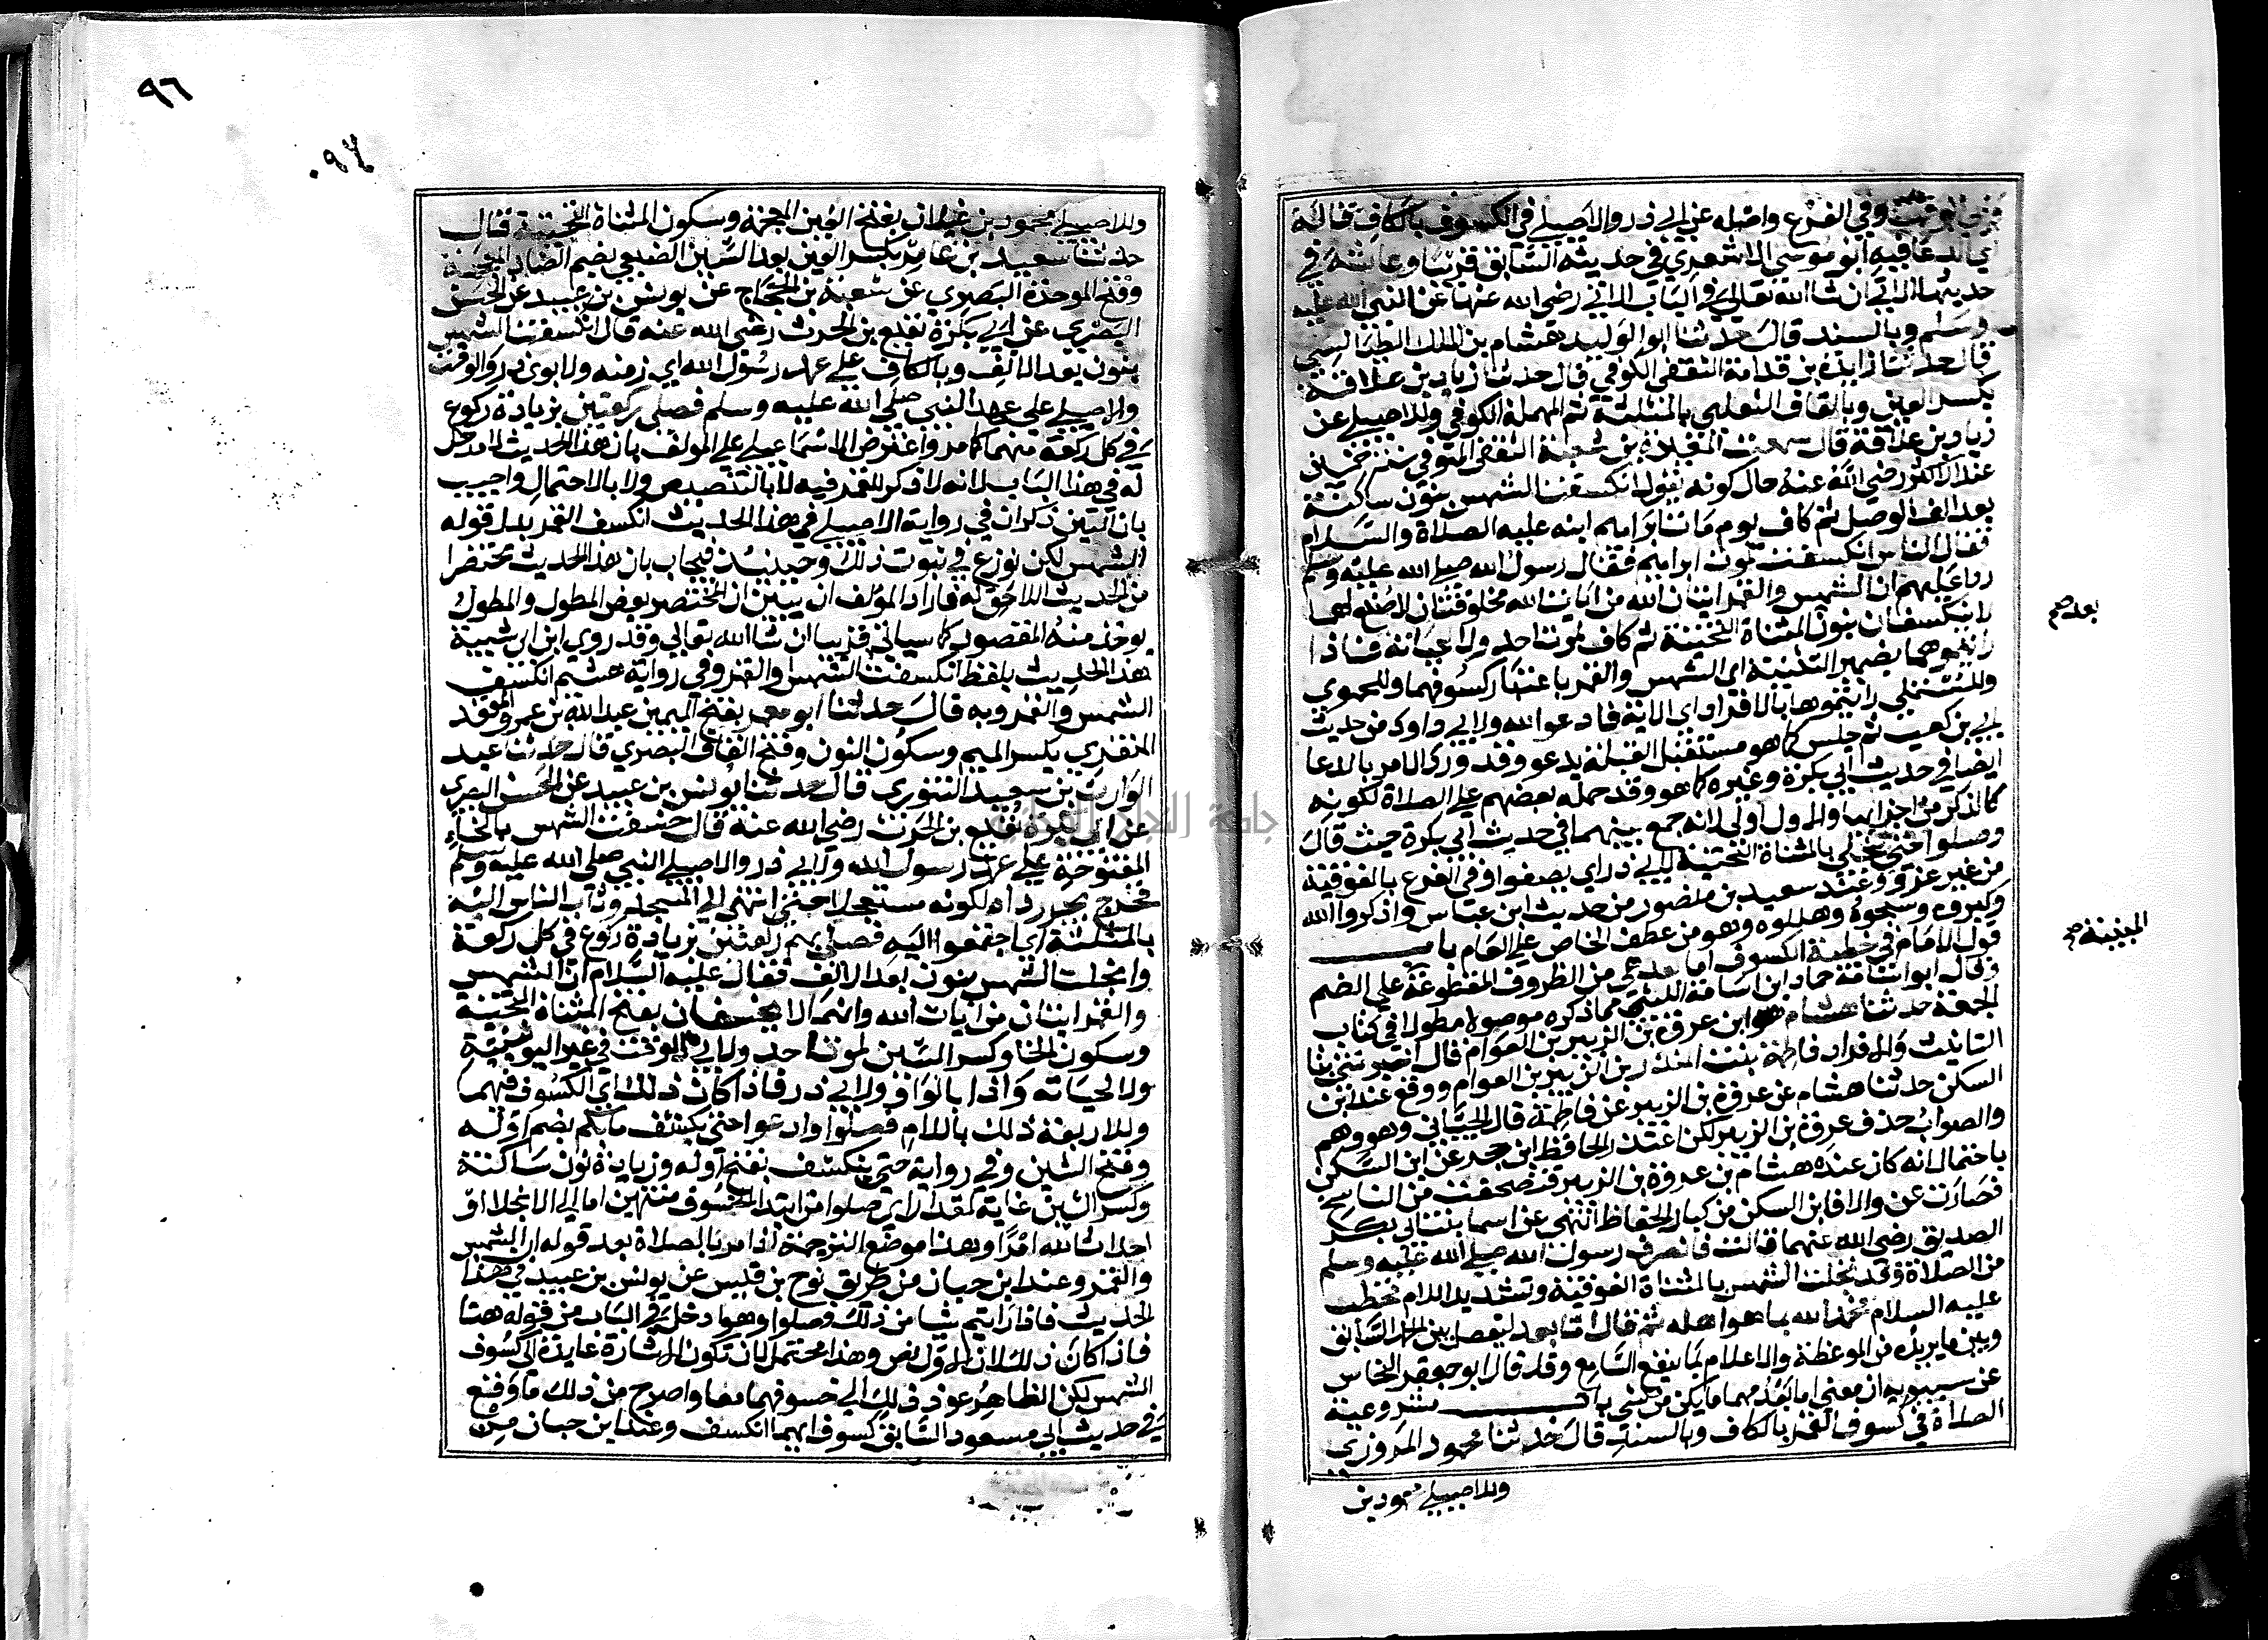 وفي الفرع واصله عن ابي ذر والاصيلي في الكسوف بالكاف قاله
اي الدعا فيه ابو موسى الاشعري في حديثه السابق قريبا وعايشة في
حديثها الاتي ان شا الله تعالى في الباب الاتي رضي الله عنها عن النبي صلى الله عليه
وسلم وبالسند قال حدثنا ابو الوليد هشام بن عبد الملك الطيالسي
قال حدثنا زايدة بن قدامة الثقفي الكوفي قال حدثنا زياد بن علاقة
بكسر العين وبالقاف الثعلبي بالمثلثة ثم المهملة الكوفي وللاصيلي عن
زياد بن علاقة قال سمعت المغيرة بن شعبة الثقفي المتوفى سنة خمسين
عند الاكثر رضي الله عنه حال كونه يقول انكسفت الشمس بنون ساكنة
بعد الف الوصل ثم كاف يوم مات ابراهيم ابنه عليه الصلاة والسلام
فقال الناس انكسفت لموت ابراهيم فقال رسول الله صلى الله عليه وسلم
ردا عليهم ان الشمس والقمر ايتان الله من ايات الله مخلوقتان لا صنع لهما
لا ينكسفان بنون المثناة التحتية ثم كاف لموت احد ولا لحياته فاذا
رايتموهما بضمير التثنية اي الشمس والقمر باعتبار كسوفهما وللحموي
وللمستملي رايتموها بالافراد اي الاية فادعوا الله ولابي داود من حديث
ابي بن كعب ثم جلس كما هو مستقبل القبلة يدعو وقد ورد الامر بالدعا
ايضا في حديث ابي بكرة وغيره كما هو وقد حمله بعضهم على الصلاة لكونه
كالذكر من اجزايها والاول اولى لانه جمع بينهما في حديث ابي بكرة حيث قال
وصلوا حتى ينجلي بالمثناة التحتية لابي ذر اي يصفوا وفي الفرع بالفوقية
من غير عزو وعند سعيد بن منصور من حديث ابن عباس واذكروا الله
وكبروه وسبحوه وهللوه وهو من عطف الخاص على العام باب
قول الامام في خطبة الكسوف اما بعد هي من الظروف المقطوعة على الضم
وقال ابو اسامة حماد ابن اسامة الليثي مما ذكره موصولا مطولا في كتاب
الجمعة حدثنا هشام هو ابن عروة بن الزبير بن العوام قال اخبرتني بتا
التانيث والافراد فاطمة بنت المنذر بن الزبير بن العوام ووقع عند ابن
السكن حدثنا هشام عن عروة بن الزبير عن فاطمة قال الجياني وهو وهم
والصواب حذف عروة بن الزبير لكن اعتذر الحافظ ابن حجر عن ابن السكن
باحتمال انه كان عنده هشام بن عروة بن الزبير فتصحفت من الناسخ
فصارت عن والا فابن السكن من كبار الحفاظ انتهى عن اسما بنت ابي بكر
الصديق رضي الله عنهما قالت فانصرف رسول الله صلى الله عليه وسلم
من الصلاة وقد تجلت الشمس بالمثناة الفوقية وتشديد اللام فخطب
عليه السلام فحمد الله بما هو اهله ثم قال اما بعد ليفصل بين الحمد السابق
وبين ما يريده من الموعظة والاعلام بما ينفع السامع وقد قال ابو جعفر النحاس
عن سيبويه ان معنى اما بعد مهما يكن من شي باب مشروعية
الصلاة في كسوف القمر بالكاف وبالسند قال حدثنا محمود المروزي
وللاصيلي محمود بن
بعد صح
المبنية صح
٩٦
٠٩٤
وللاصيلي محمود بن غيلان بفتح الغين المعجمة وسكون المثناة التحتية قال
حدثنا سعيد بن عامر بكسر العين بعد السين الضبعي بضم الضاد المعجمة
وفتح الموحدة البصري عن شعبة بن الحجاج عن يونس بن عبيد عن الحسن
البصري عن ابي بكرة نفيع بن الحرث رضي الله عنه قال انكسفت الشمس
بنون بعد الالف وبالكاف على عهد رسول الله اي زمنه ولابوي ذر والوقت
والاصيلي على عهد النبي صلى الله عليه وسلم فصلى ركعتين بزيادة ركوع
في كل ركعة منهما كما مر واعترض الاسماعيلي على المولف بان هذا الحديث لا مدخل
له في هذا الباب لانه لا ذكر للقمر فيه لا بالتنصيص ولا بالاحتمال واجيب
بان ابن التين ذكر ان في رواية الاصيلي في هذا الحديث انكسف القمر بدل قوله
الشمس لكن نوزع في ثبوت ذلك وحينيذ فيجاب بان هذا الحديث مختصرا
من الحديث اللاحق له فاراد المؤلف ان يبين ان المختصر بعض المطول والمطول
يوخذ منه المقصود كما سياتي قريبا ان شا الله تعالى وقد روى ابن ابي شيبة
هذا الحديث بلفظ انكسفت الشمس والقمر وفي رواية هشيم انكسف
الشمس والقمر وبه قال حدثنا ابو معمر بفتح الميمين عبد الله بن عمرو المقعد
المنقري بكسر الميم وسكون النون وفتح القاف البصري قال حدثنا عبد
الوارث بن سعيد التنوري قال حدثنا يونس بن عبيد عن الحسن البصري
عن ابي بكرة نفيع بن الحرث رضي الله عنه قال خسفت الشمس بالخاء
المفتوحة على عهد رسول الله ولابي ذر والاصيلي النبي صلى الله عليه وسلم
فخرج يجر رداه لكونه مستعجلا حتى انتهى الى المسجد وثاب الناس اليه
بالمثلثة اي اجتمعوا اليه فصلى بهم ركعتين بزيادة ركوع في كل ركعة
وانجلت الشمس بنون بعد الالف فقال عليه السلام ان الشمس
والقمر ايتان من ايات الله وانهما لا يخسفان بفتح المثناة التحتية
وسكون الخا وكسر السين لموت احد ولابي الوقت في غير اليونينية
ولا لحياته واذا بالواو ولابي ذر فاذا كان ذلك اي الكسوف فيهما
وللاربعة ذلك باللام فصلوا وادعوا حتى يكشف ما بكم بضم اوله
وفتح الشين وفي رواية حتى ينكشف بفتح اوله وزيادة نون ساكنة
وكسر الشين غاية لمقدر اي صلوا من ابتدا الخسوف منتهين اما الى الانجلا او
احداث الله امرا وهذا موضع الترجمة اذ امر بالصلاة بعد قوله ان الشمس
والقمر وعند ابن حبان من طريق نوح بن قيس عن يونس بن عبيد في هذا
الحديث فاذا رايتم شيا من ذلك فصلوا وهو ادخل في الباب من قوله هنا
فاذا كان ذلك لان الاول نص وهذا محتمل لان تكون الاشارة عايدة الى كسوف
الشمس لكن الظاهر عود ذلك الى خسوفهما معا واصرح من ذلك ما وقع
في حديث ابي مسعود السابق كسوف ايهما انكسف وعند ابن حبان من